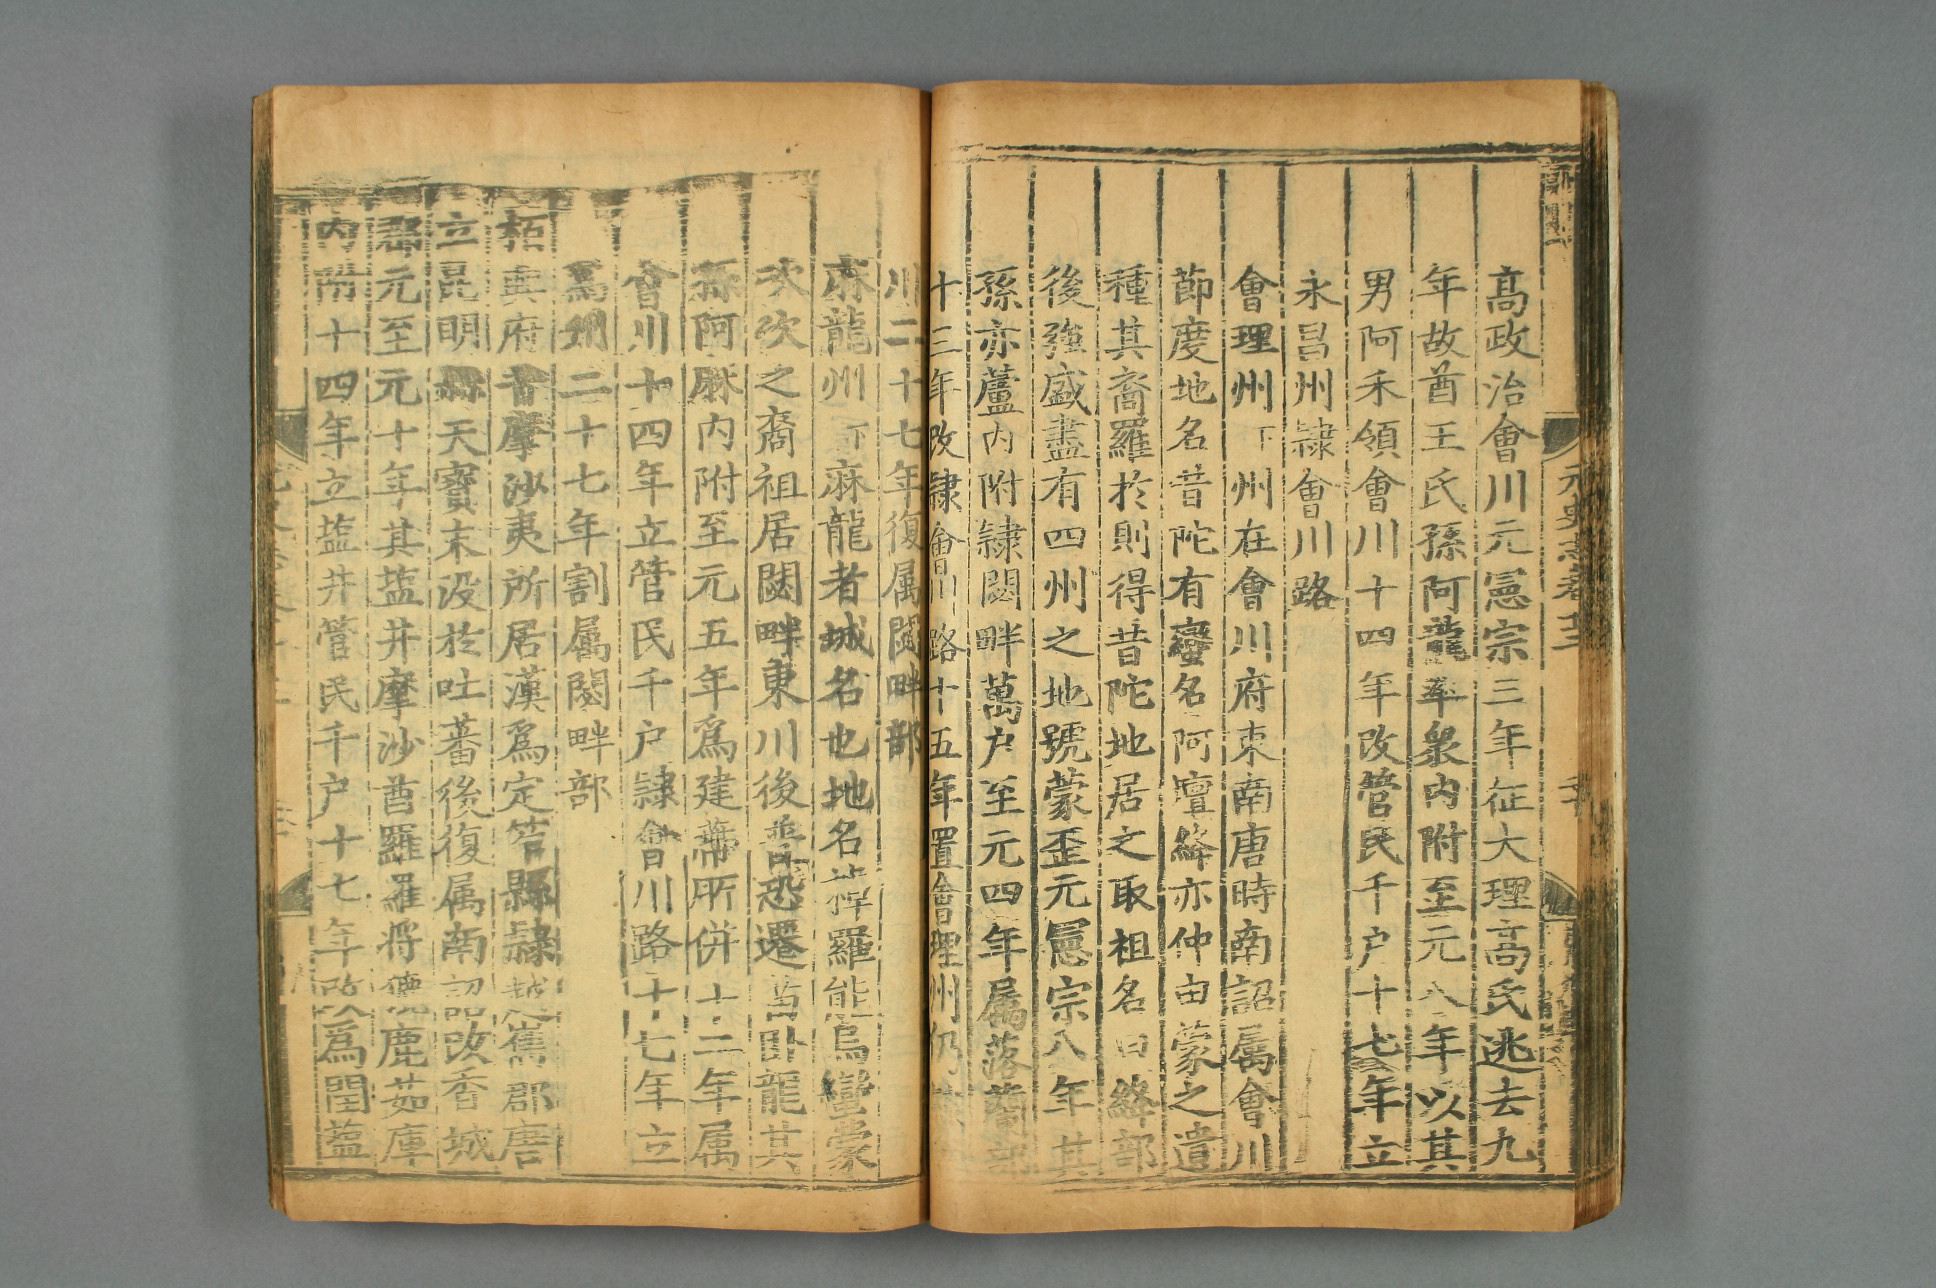 元史志卷十三
高政治會川元憲宗三年征大理高氏逃去九
年故酋王氏孫阿龍率衆内附至元八年以其
男阿禾領會川十四年改管民千户十七年立
永昌州隷會川路
會理州下州在會川府東南唐時南詔属會川
節度地名昔陀有蠻名阿壇絳亦仲由蒙之遺
種其裔羅於則得昔陀地居之取祖名曰絳部
後強盛盡有四州之地號蒙歪元憲宗八年其
孫亦蘆内附隷閟畔萬户至元四年属落蘭部
十三年改隷會川路十五年置會理州仍隷
川二十七年復属閟畔部
麻龍州下麻龍者城名也地名棹羅能烏蠻蒙
次次之裔祖居閟畔東川後普恐遷苗卧龍其
孫阿麻内附至元五年爲建蒂所併十二年属
會川十四年立管民千户隷會川路十七年立
爲州二十七年割属閟畔部
栢興府昔摩沙夷所居漢爲定笮縣隷越嶲郡唐
立昆明縣天寳末没於吐蕃後復属南詔改香城
郡元至元十年其塩井摩沙酋羅羅將鹿茹庫
内附十四年立塩井管民千户十七年改爲閏塩